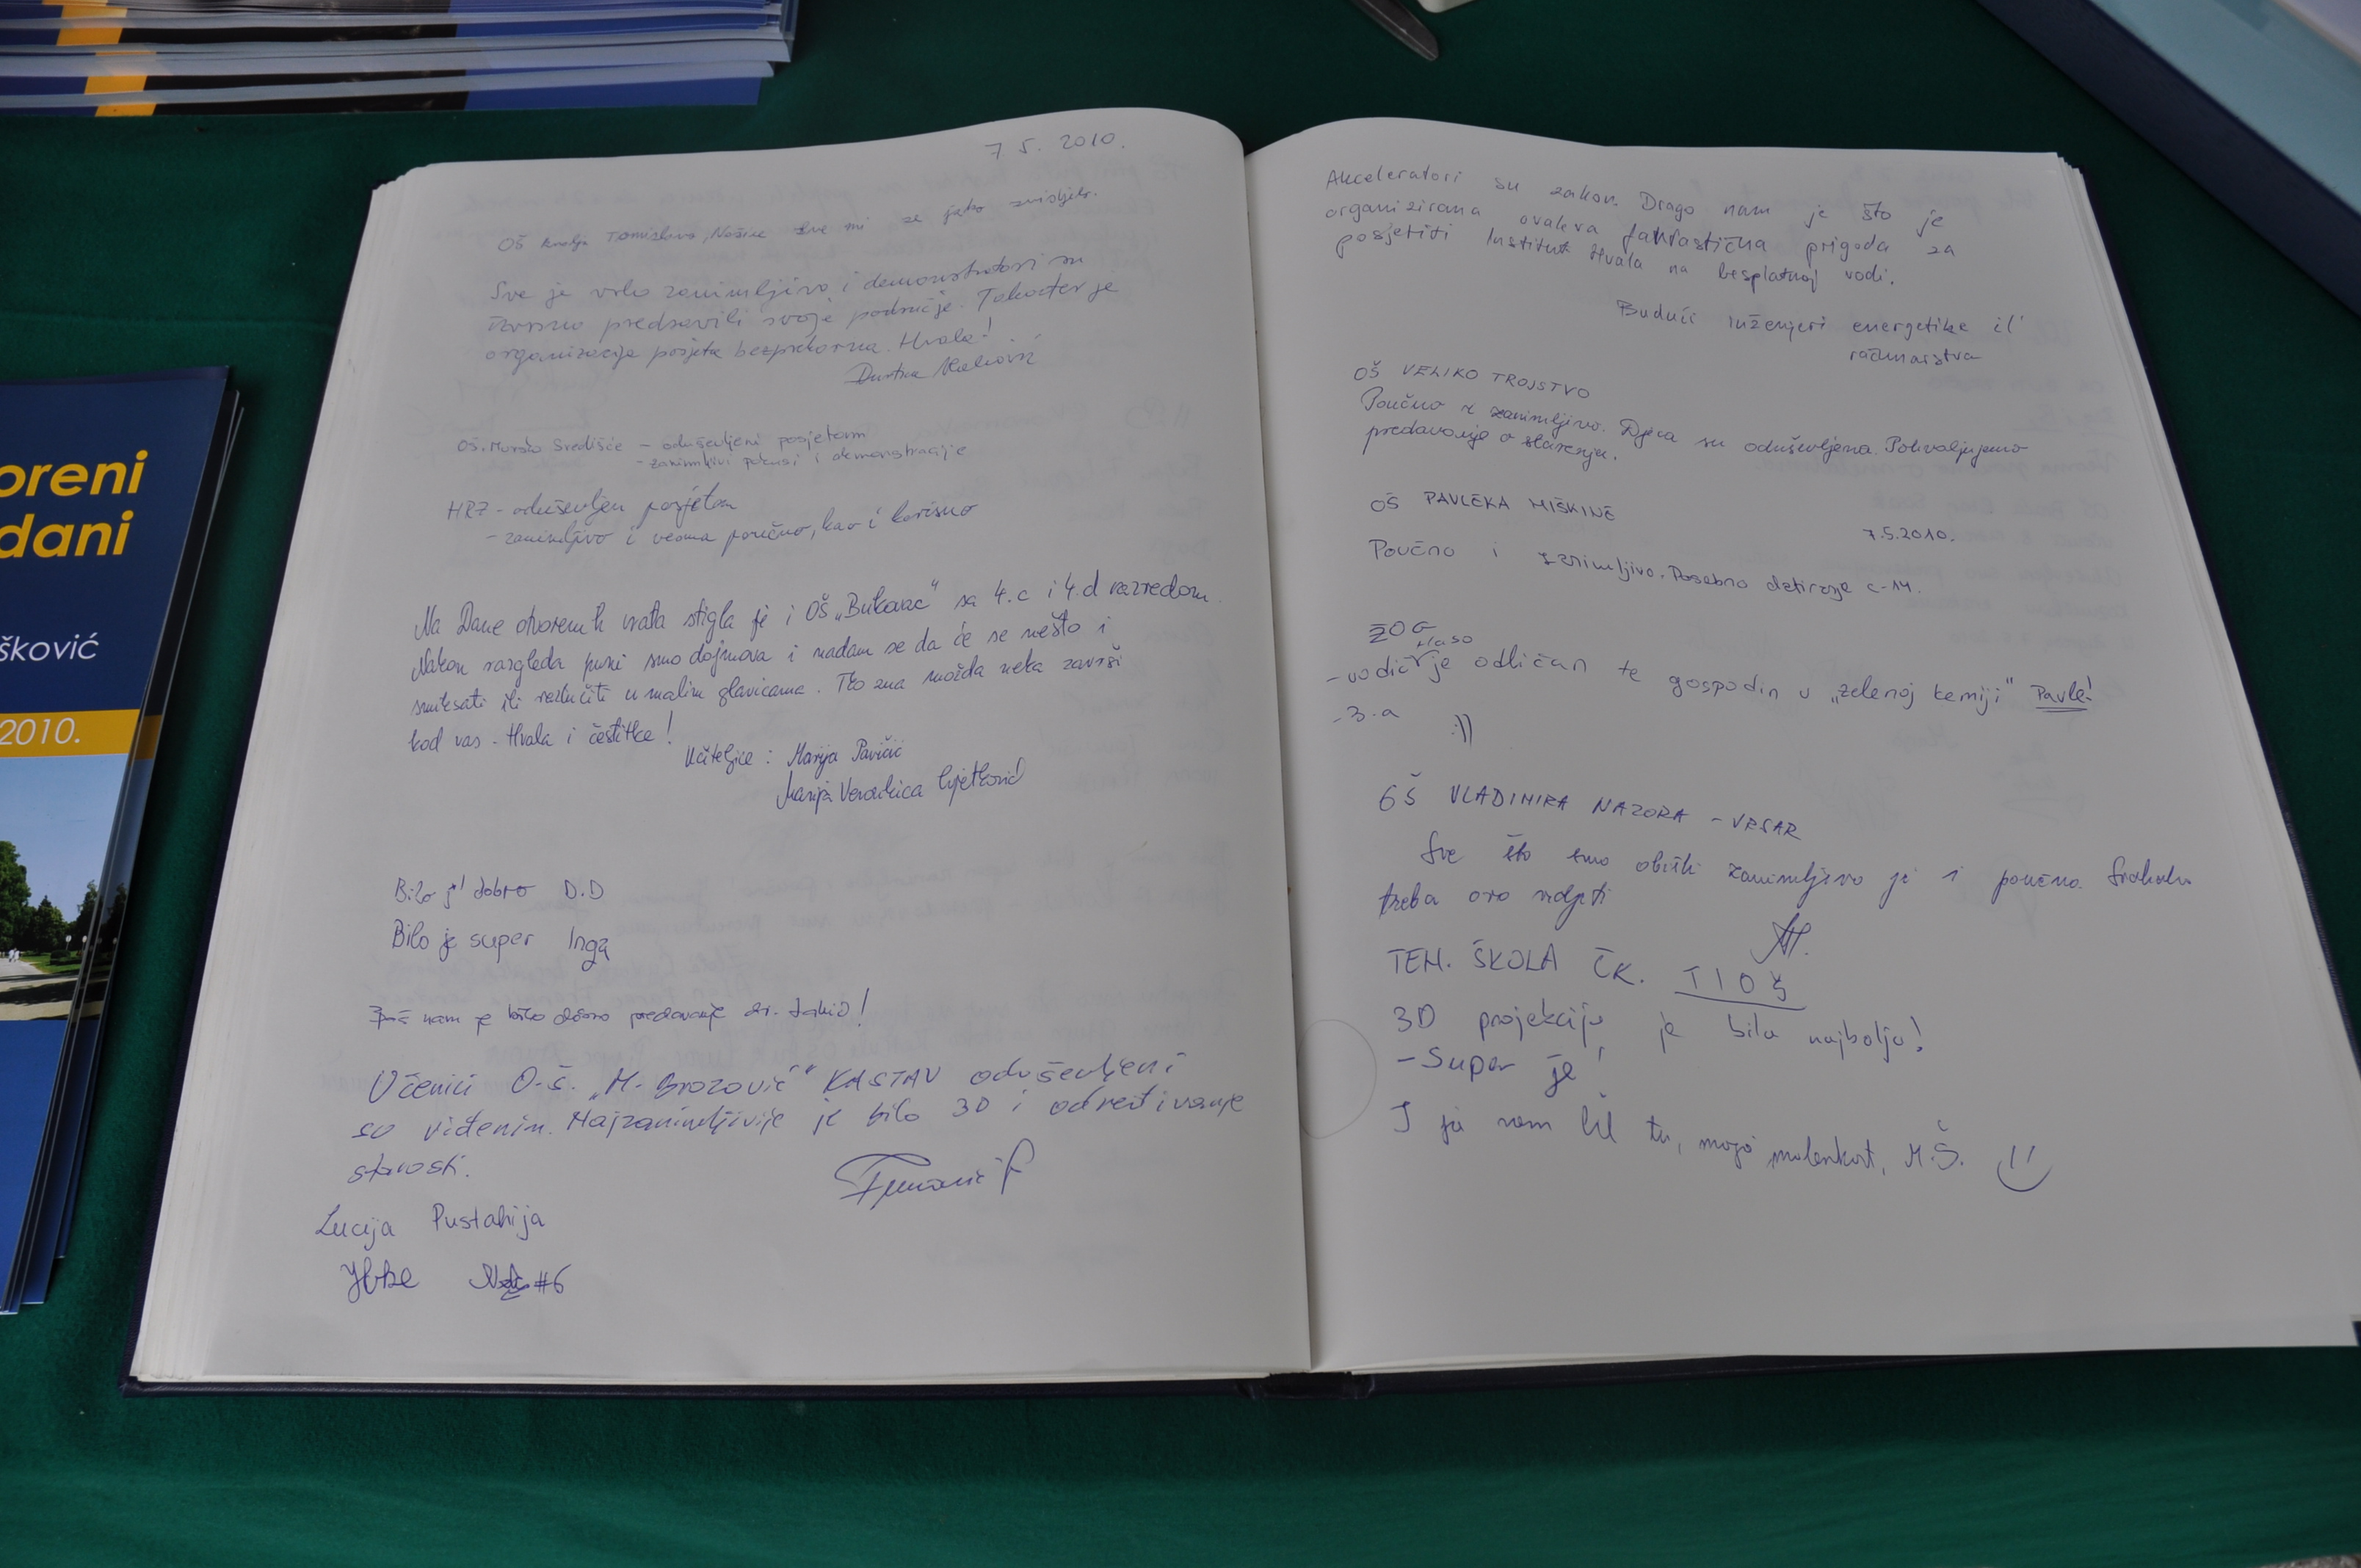 oreni
dani
šković
2010.
7 5. 2010.
OŠ kralja Tomislava, Našice sve mi se jako
Sve je vrlo zanimljivo i demonstratori su
izvrsno predsavili svoje područje. Također je
organizacija posjeta bezprekorna. Hvala!
OŠ. Mursko Središće - oduševljeni posjetom
- zanimljivi pokusi i demonstracije
HRZ - oduševljen posjetom
- zanimljivo i veoma poučno, kao i korisno
Na Dane otvorenih vrata stigla je i OŠ „Bukovac" sa 4.c i 4.d razredom.
Nakon razgleda puni smo dojmova i nadam se da će se nešto i
smiksati ili razlučiti u malim glavicama. Tko zna možda neka završi
kod vas. Hvala i čestitke!
Učiteljice: Marija Pavičić
Marija Veronika Cvjetković
Bilo je dobro D.D
Bilo je super Inga
nam je bilo dobro predavanje dr.
Učenici O.š. „M. Brozović" KASTAV oduševljeni
su viđenim. Najzanimljivije je bilo 3D i određivanje
starosti.
Lucija Pustahija
#6
Akceleratori su zakon. Drago nam je što je
organizirana ovakva fantastična prigoda za
posjetiti Institut. Hvala na besplatnoj vodi.
Budući inženjeri energetike il'
računarstva
OŠ VELIKO TROJSTVO
Poučno i zanimljivo. Djeca su oduševljena. Pohvaljujemo
predavanje o starenju.
OŠ PAVLEKA MIŠKINE
7.5.2010.
Poučno i zanimljivo. Posebno datiranje c-14.
ŽOG
-vodič je odličan te gospodin u „zelenoj kemiji" Pavle!
-3.a :))
OŠ VLADIMIRA NAZORA - VRSAR
Sve što smo obišli zanimljivo je i poučno. Svakako
treba ovo vidjeti
TEH. ŠKOLA ČK. TIOŠ
3D projekcija je bila najbolja!
-Super je!
I ja sam bil tu, moja malenkost, M.Š.